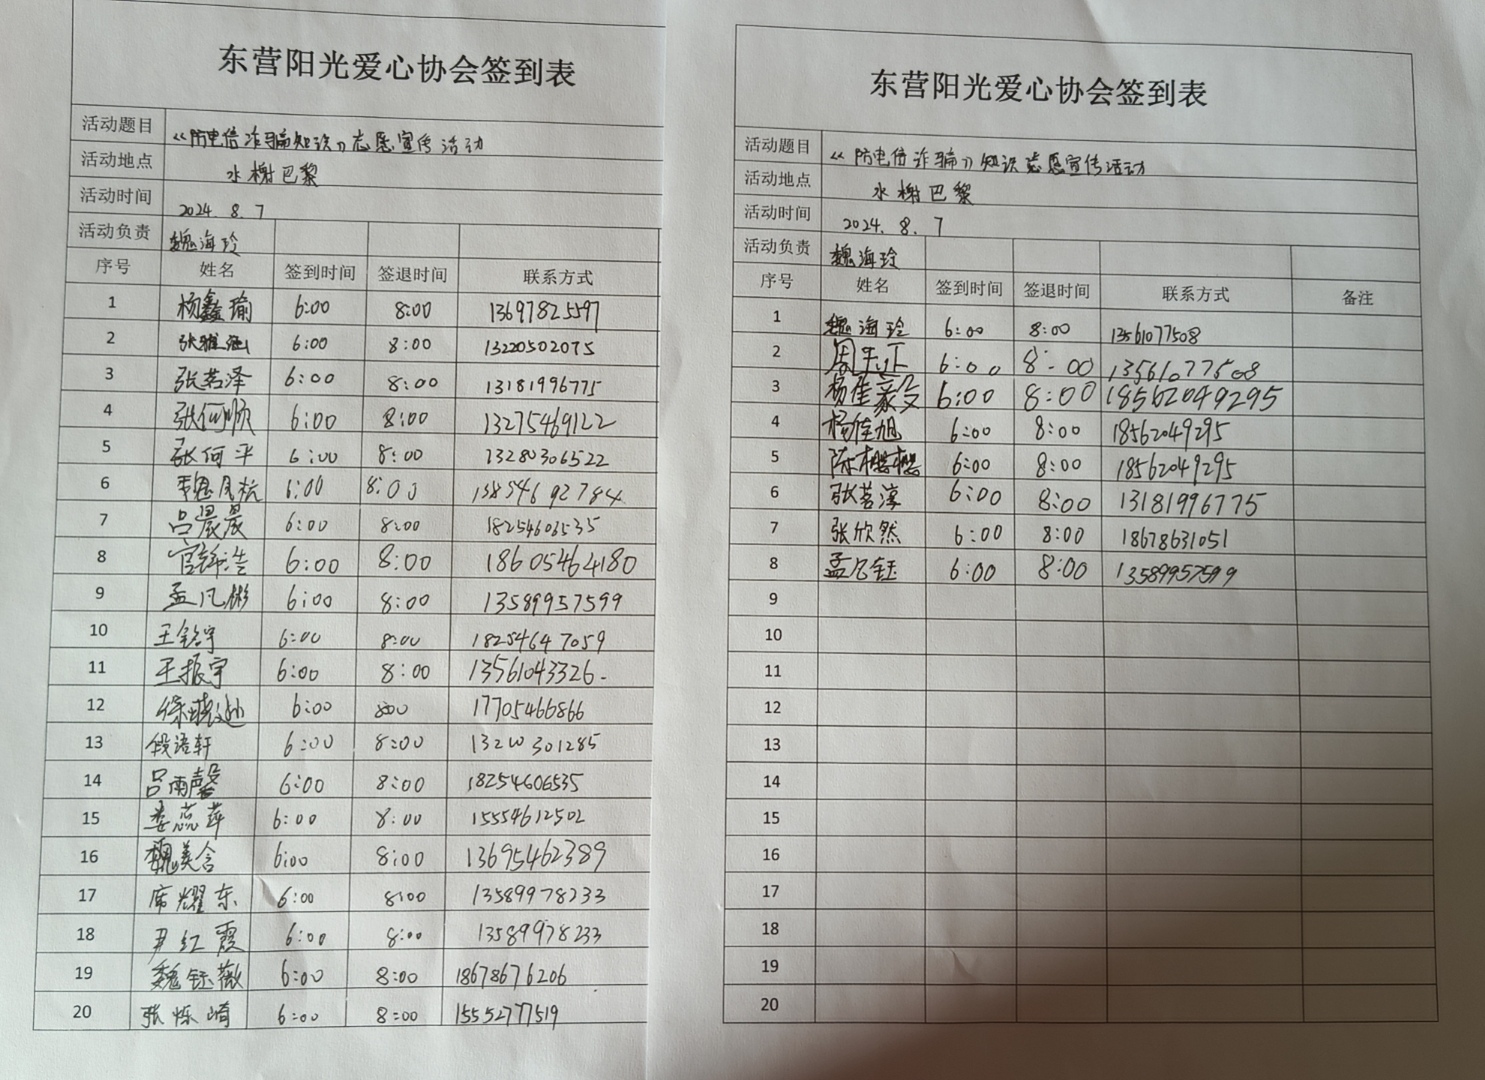 东营阳光爱心协会签到表
活动题目 《防电信诈骗知识》志愿宣传活动
活动地点 水榭巴黎
活动时间 2024.8.7
活动负责 魏海玲
序号 姓名 签到时间 签退时间 联系方式
1 杨鑫瑜 6:00 8:00 13697825597
2 张雅涵 6:00 8:00 13220502075
3 张茗泽 6:00 8:00 13181996775
4 张何顺 6:00 8:00 13275469122
5 张何平 6:00 8:00 13280306522
6 6:00 8:00 13854692784
7 吕晨晨 6:00 8:00 18254606535
8 6:00 8:00 18605464180
9 孟凡彬 6:00 8:00 13589957599
10 王铭宇 6:00 8:00 18254647059
11 王振宇 6:00 8:00 13561043326.
12 徐晓逊 6:00 8:00 17705466866
13 段语轩 6:00 8:00
14 吕雨馨 6:00 8:00 18254606535
15 娄蕊萍 6:00 8:00 15554612502
16 魏美含 6:00 8:00 13695462389
17 席耀东 6:00 8:00 13589978233
18 尹红霞 6:00 8:00 13589978233
19 魏钰薇 6:00 8:00 18678676206
20 张烁崎 6:00 8:00 15552777519
东营阳光爱心协会签到表
活动题目 《防电信诈骗》知识志愿宣传活动
活动地点 水榭巴黎
活动时间 2024.8.7
活动负责 魏海玲
序号 姓名 签到时间 签退时间 联系方式 备注
1 魏海玲 6:00 8:00 13561077508
2 6:00 8:00 13561077508
3 6:00 8:00 18562049295
4 杨佳旭 6:00 8:00 18562049295
5 陈樱樱 6:00 8:00 18562049295
6 张茗淳 6:00 8:00 13181996775
7 张欣然 6:00 8:00 18678631051
8 孟凡钰 6:00 8:00 13589957599
9
10
11
12
13
14
15
16
17
18
19
20